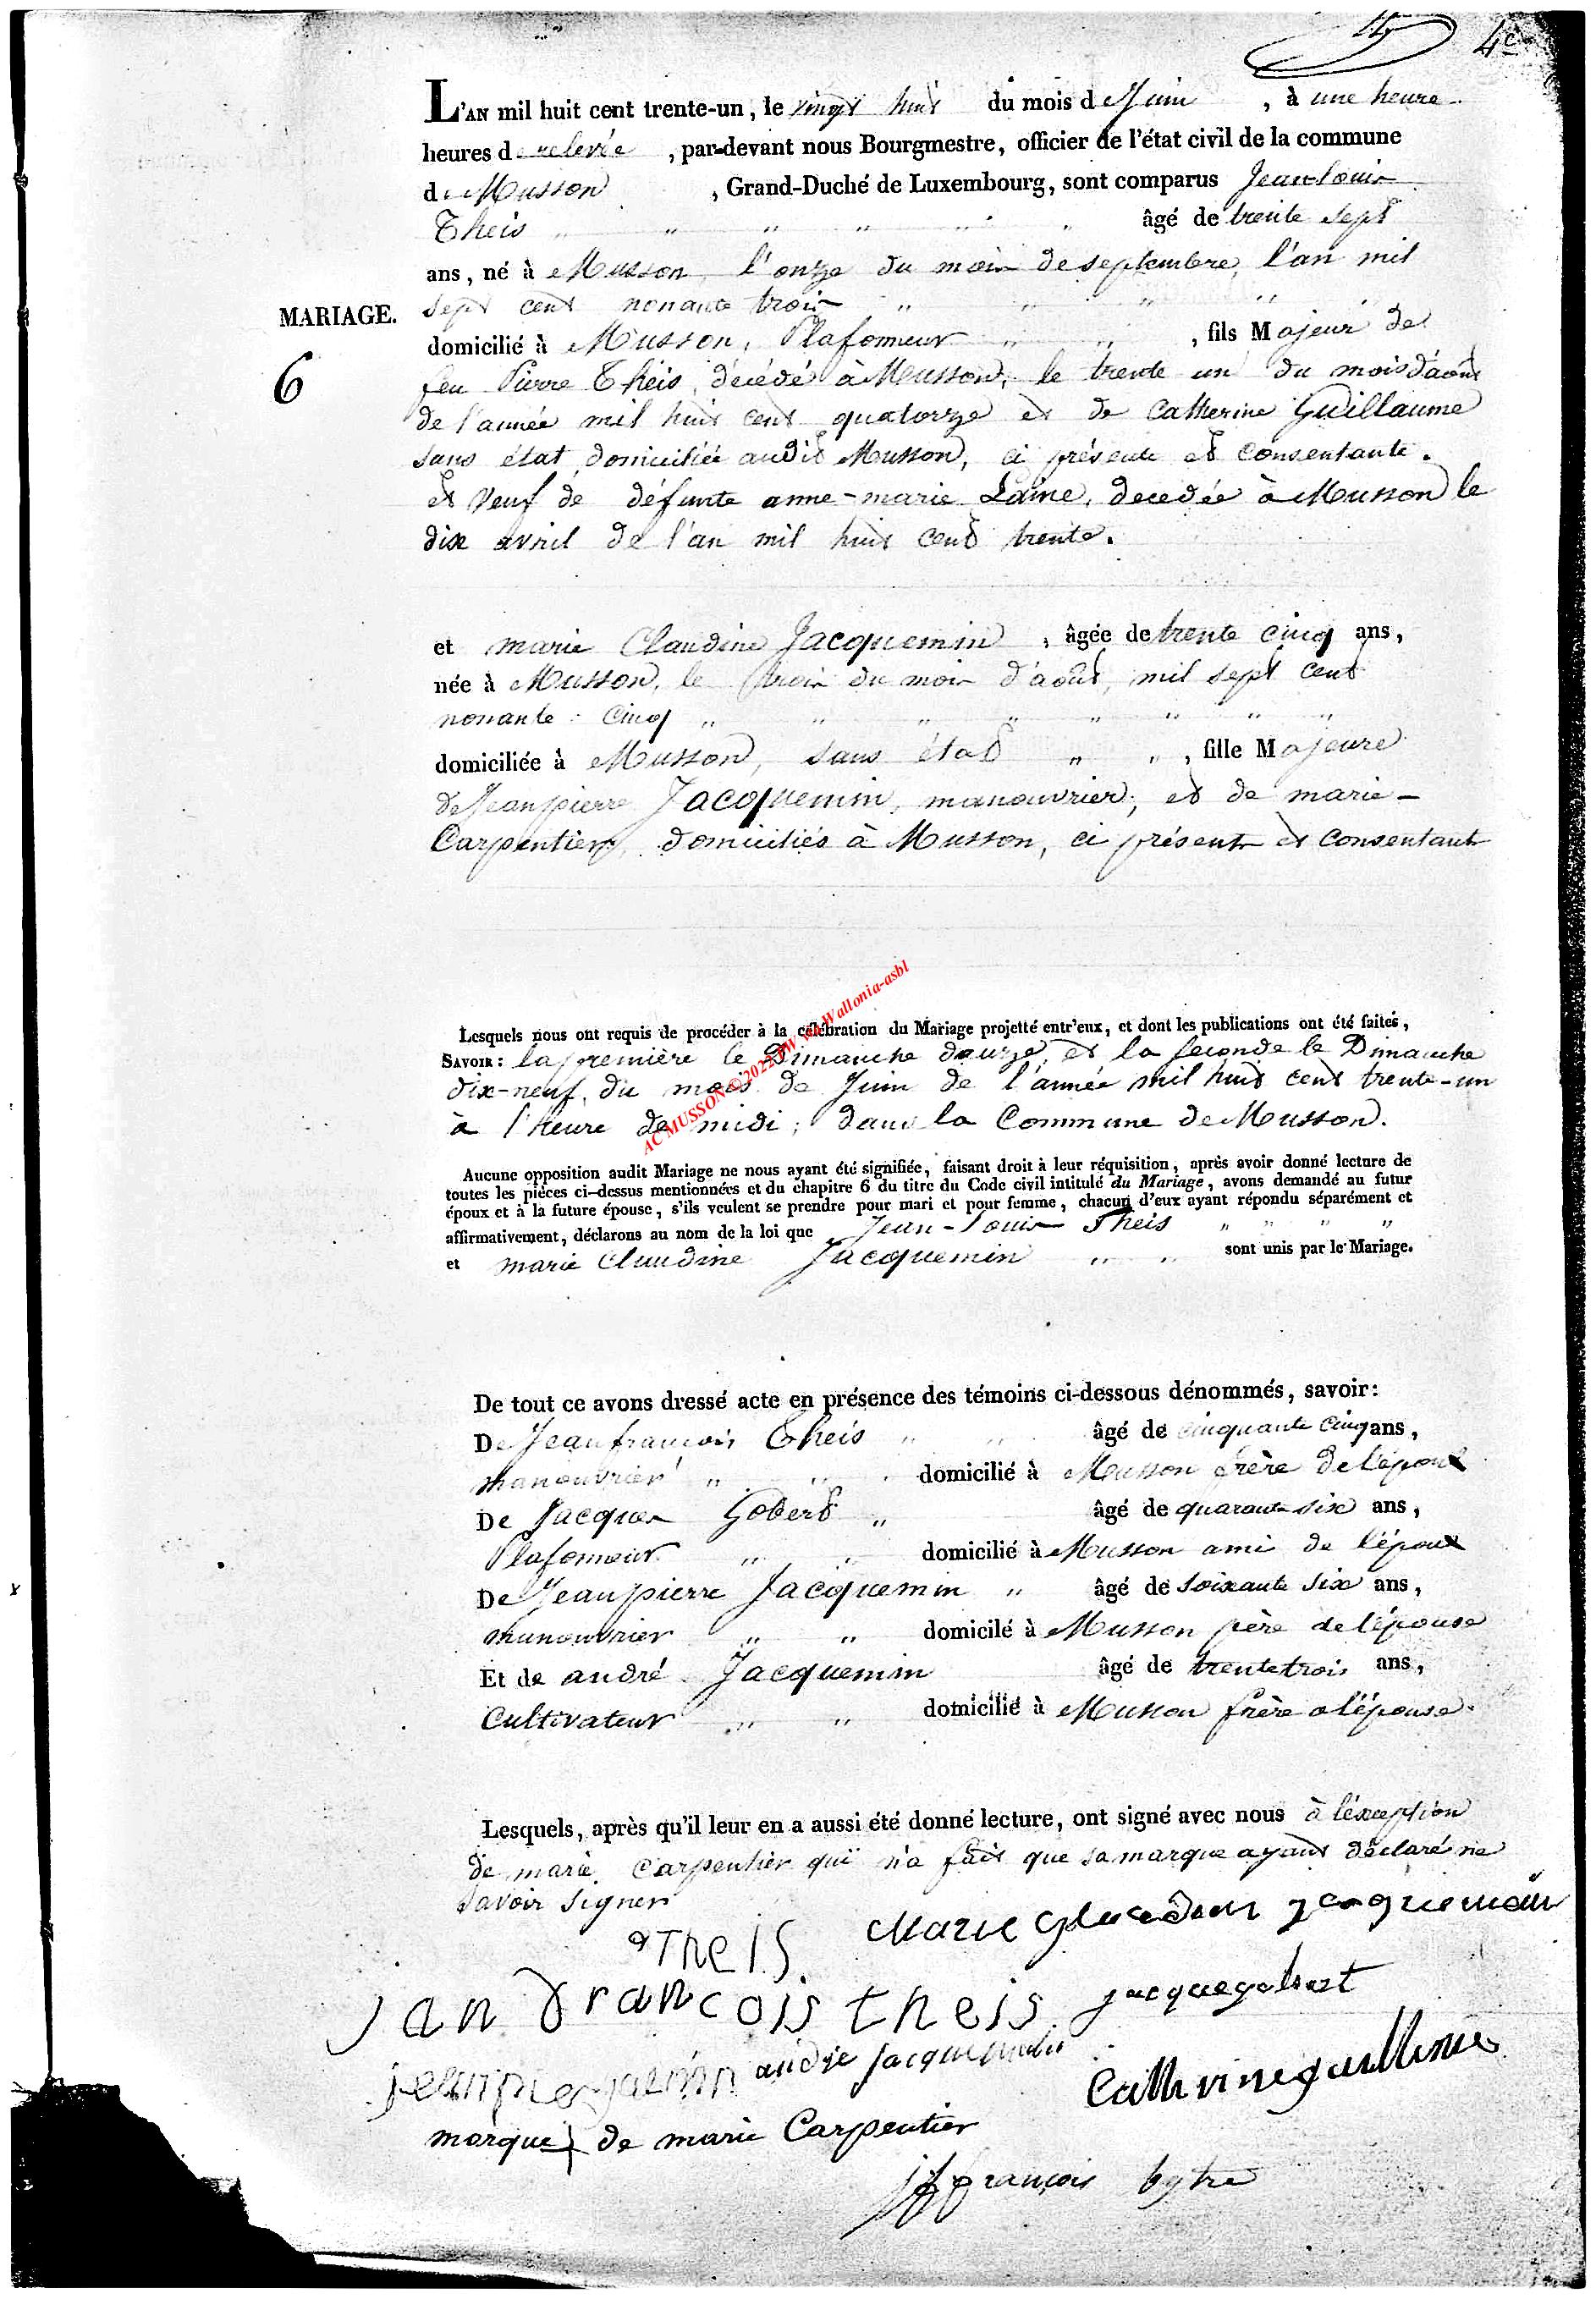 4e
L'AN mil huit cent trente-un, le vingt huit du mois de Juin , à une heure
heures de relevée , par-devant nous Bourgmestre, officier de l'état civil de la commune
de Musson , Grand-Duché de Luxembourg, sont comparus Jean-louis
Theis " " " " " " âgé de trente sept
ans, né à Musson, l'onze du mois de septembre, l'an mil
MARIAGE. sept cent nonante trois " " " " "
domicilié à Musson, Plafonneur " " , fils Majeur de
6 feu Pierre Theis, décédé à Musson, le trente un du mois d'août
de l'année mil huit cent quatorze et de Catherine Guillaume
sans état domiciliée audit Musson, ci présente et consentante.
et Veuf de défunte anne-marie Laine, decedée à Musson le
dix avril de l'an mil huit cent trente.
et marie Claudine Jacquemin , âgée de trente cinq ans,
née à Musson, le trois du mois d'août, mil sept cent
nonante-cinq " " " " " " " "
domiciliée à Musson, sans état " " , fille Majeure
de Jean pierre Jacquemin, manouvrier, et de marie-
Carpentier, domiciliés à Musson, ci présents et consentants
Lesquels nous ont requis de procéder à la célébration du Mariage projetté entr'eux, et dont les publications ont été faites,
SAVOIR : la première le Dimanche douze, et la seconde le Dimanche
dix-neuf, du mois de Juin de l'année mil huit cent trente-un
à l'heure de midi, dans la Commune de Musson.
AC MUSSON © 2022 Wallonia-asbl
Aucune opposition audit Mariage ne nous ayant été signifiée, faisant droit à leur réquisition, après avoir donné lecture de
toutes les pièces ci-dessus mentionnées et du chapitre 6 du titre du Code civil intitulé du Mariage, avons demandé au futur
époux et à la future épouse, s'ils veulent se prendre pour mari et pour femme, chacun d'eux ayant répondu séparément et
affirmativement, déclarons au nom de la loi que Jean-louis Theis " " " "
et marie Claudine Jacquemin " " sont unis par le Mariage.
De tout ce avons dressé acte en présence des témoins ci-dessous dénommés, savoir:
De Jean francois Theis " " âgé de cinquante cinq ans,
manouvrier " " " domicilié à Musson frère de l'époux
De Jacques Gobert " âgé de quarante six ans,
Plafonneur " " domicilié à Musson ami de l'époux
De Jean pierre Jacquemin " âgé de soixante six ans,
manouvrier " " domicilé à Musson père de l'épouse
Et de andré Jacquemin âgé de trente trois ans,
Cultivateur " " domicilié à Musson frère à l'épouse.
Lesquels, après qu'il leur en a aussi été donné lecture, ont signé avec nous à l'exception
de marie Carpentier qui n'a fait que sa marque ayant déclaré ne
savoir signer
THeIS. Marie jacquemain
jan francois theis jacque gobert
andre jacquemin
Catherine guillaume
marque de marie Carpentier
françois